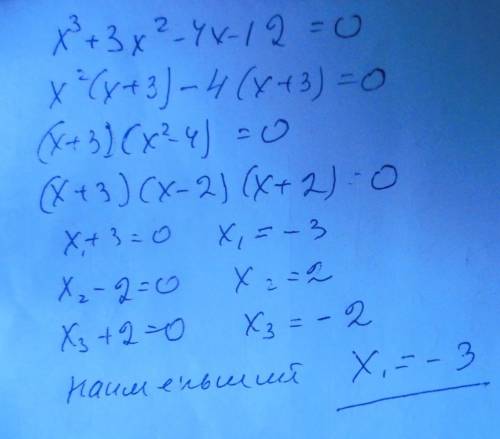 x³+3x²-4x-12=0
x²(x+3)-4(x+3)=0
(x+3)(x²-4)=0
(x+3)(x-2)(x+2)=0
x₁+3=0 x₁=-3
x₂-2=0 x₂=2
x₃+2=0 x₃=-2
наименьший x₁=-3